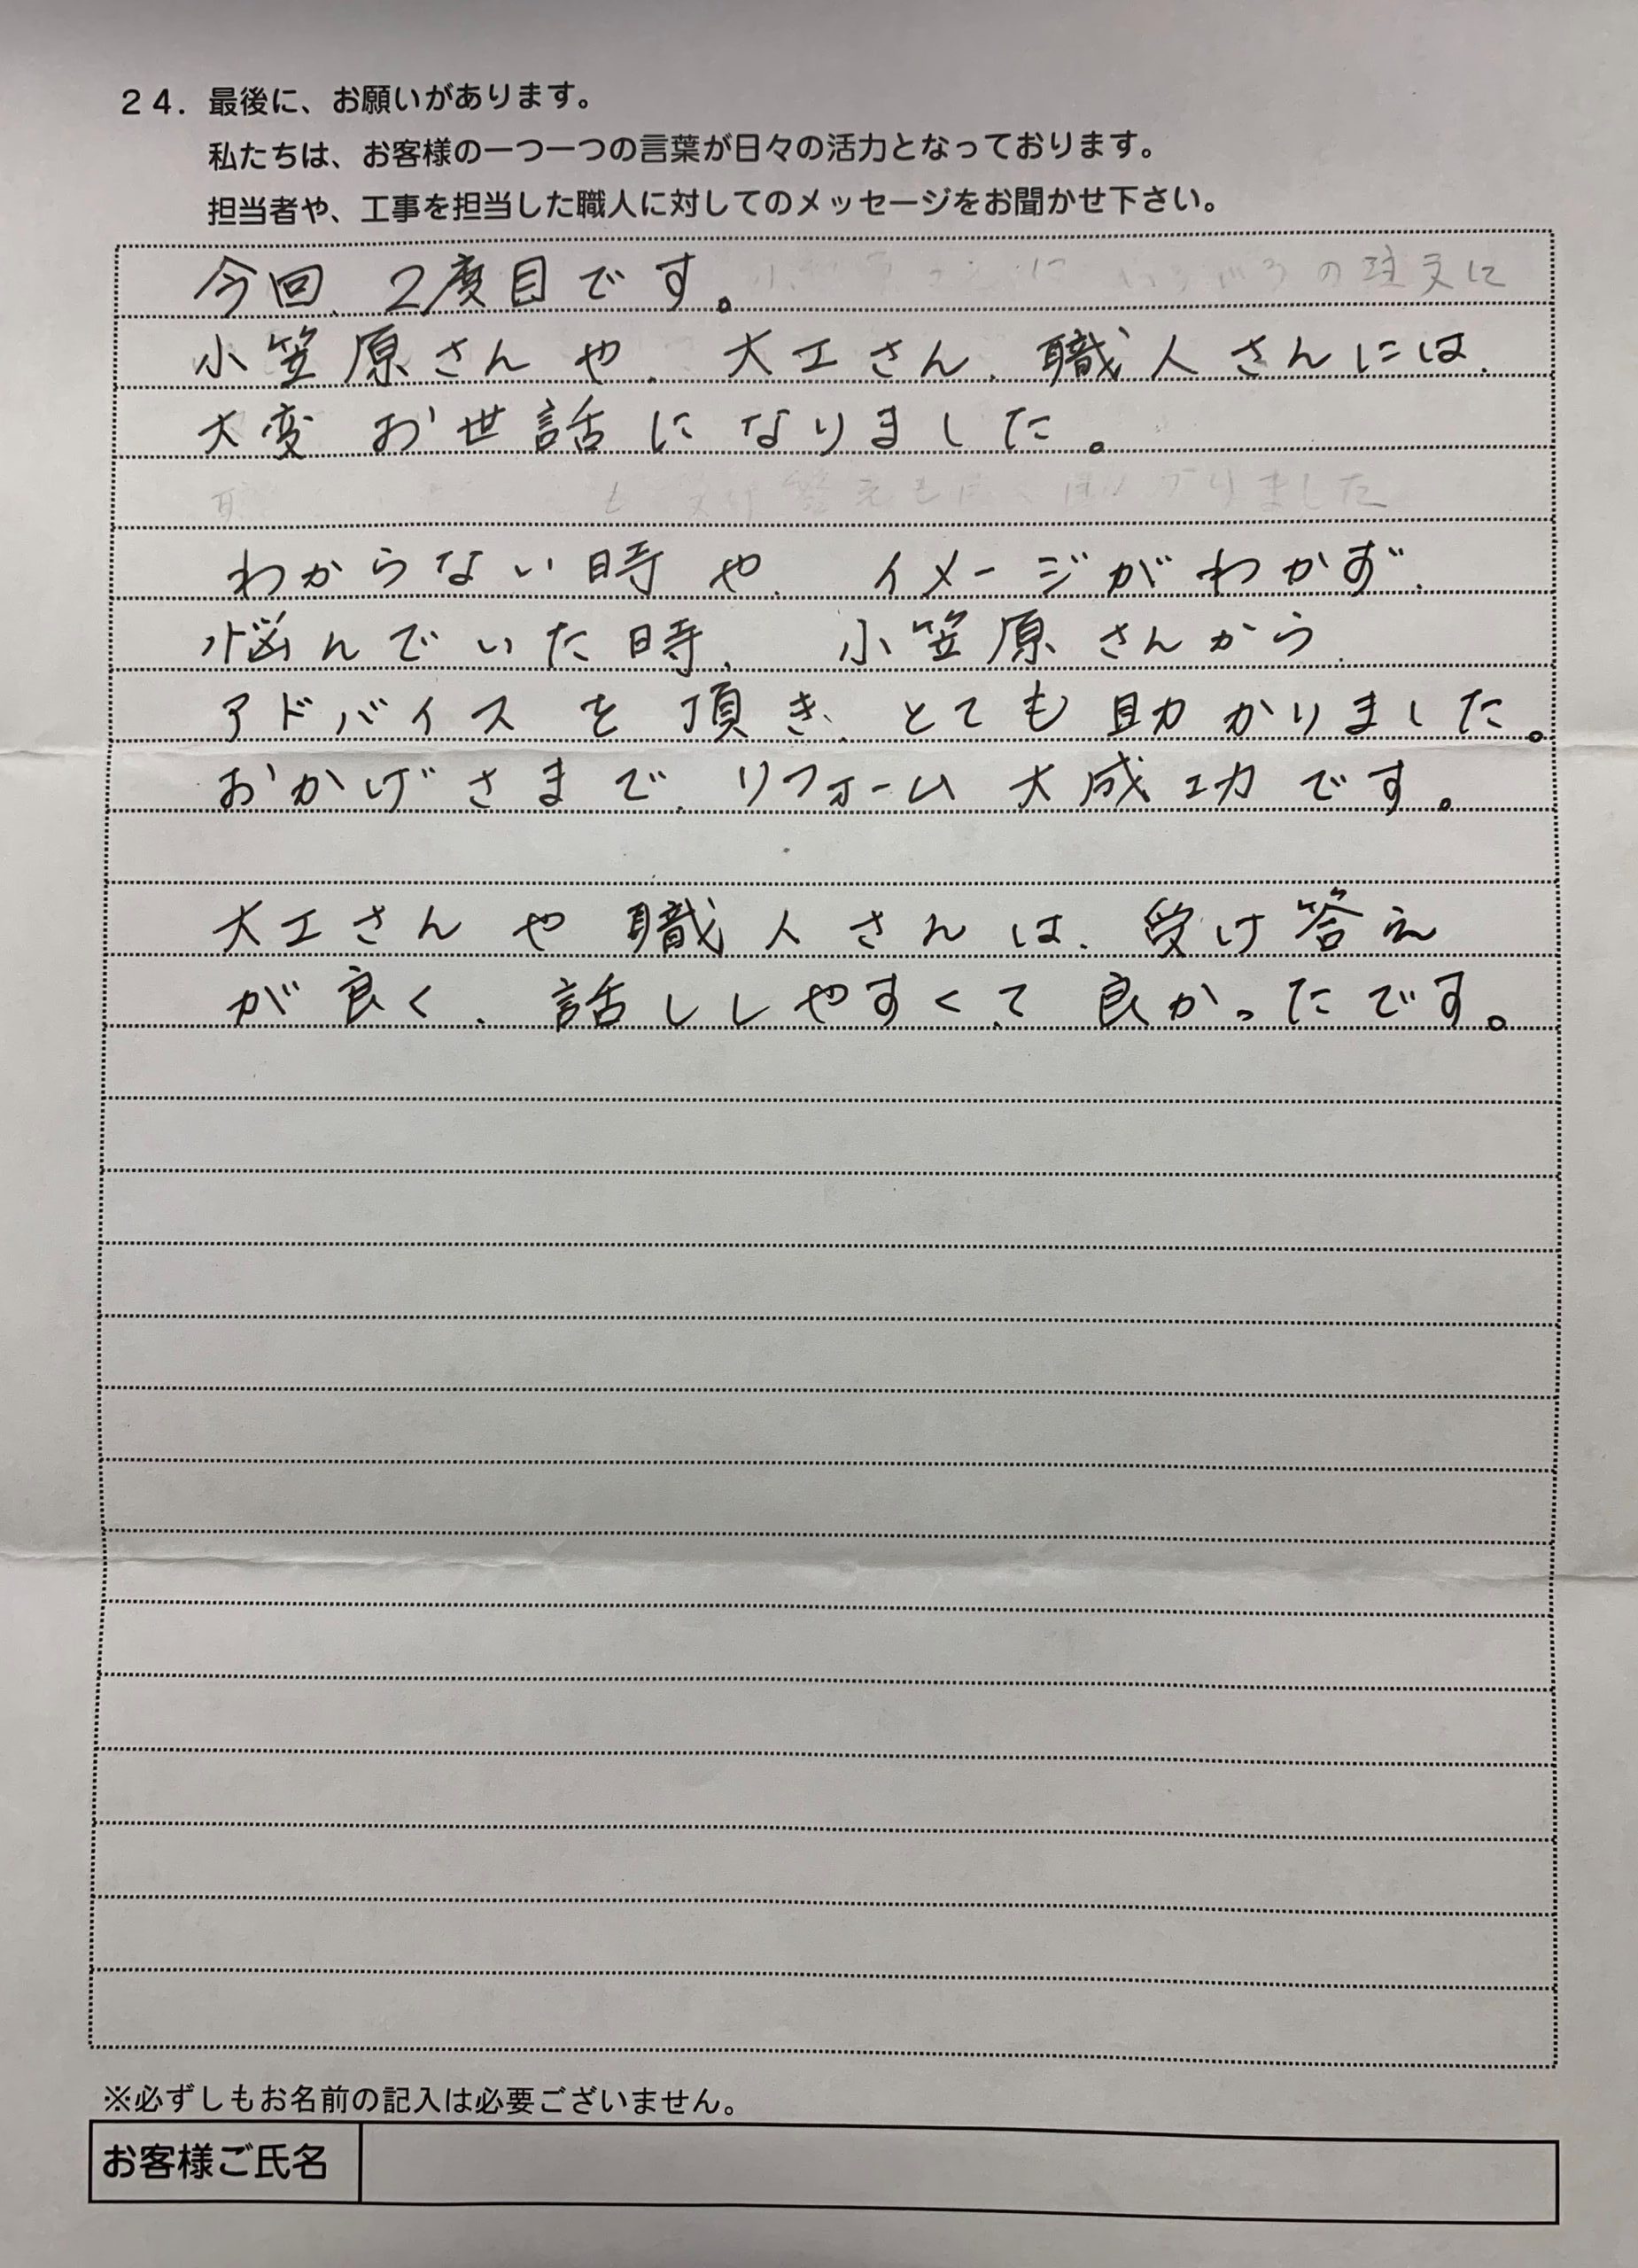 ２４．最後に、お願いがあります。
私たちは、お客様の一つ一つの言葉が日々の活力となっております。
担当者や、工事を担当した職人に対してのメッセージをお聞かせ下さい。
今回、2度目です。
の注文に
小笠原さんや、大工さん、職人さんには、
大変お世話になりました。
答えも
りました
わからない時や、イメージがわかず、
悩んでいた時、小笠原さんから、
アドバイスを頂き、とても助かりました。
おかげさまで、リフォーム大成功です。
大工さんや職人さんは、受け答え
が良く、話ししやすくて良かったです。
※必ずしもお名前の記入は必要ございません。
お客様ご氏名